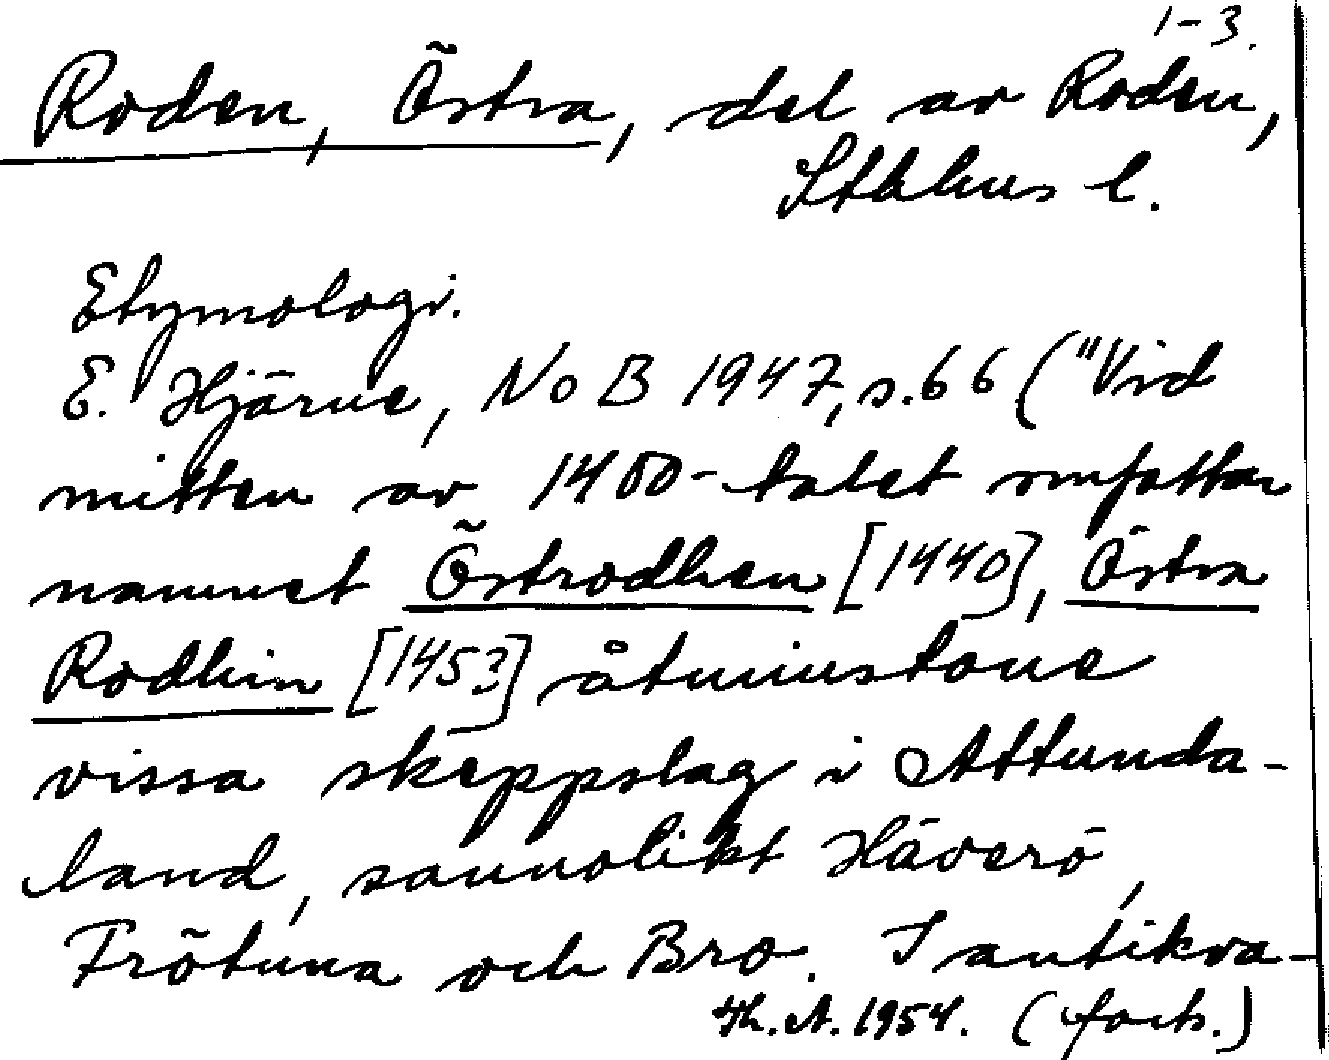 1-3.
Roden, Östra, del av Roden,
Sthlms l.
Etymologi.
E. Hjärne, NoB 1947, s. 66 ("Vid
mitten av 1400-talet omfattar
namnet Östrodhen [1440], Östra
Rodhin [1453] åtminstone
vissa skeppslag i Attunda-
land, sannolikt Häverö,
Frötuna och Bro. I antikva-
Th. A. 1954. (forts.)